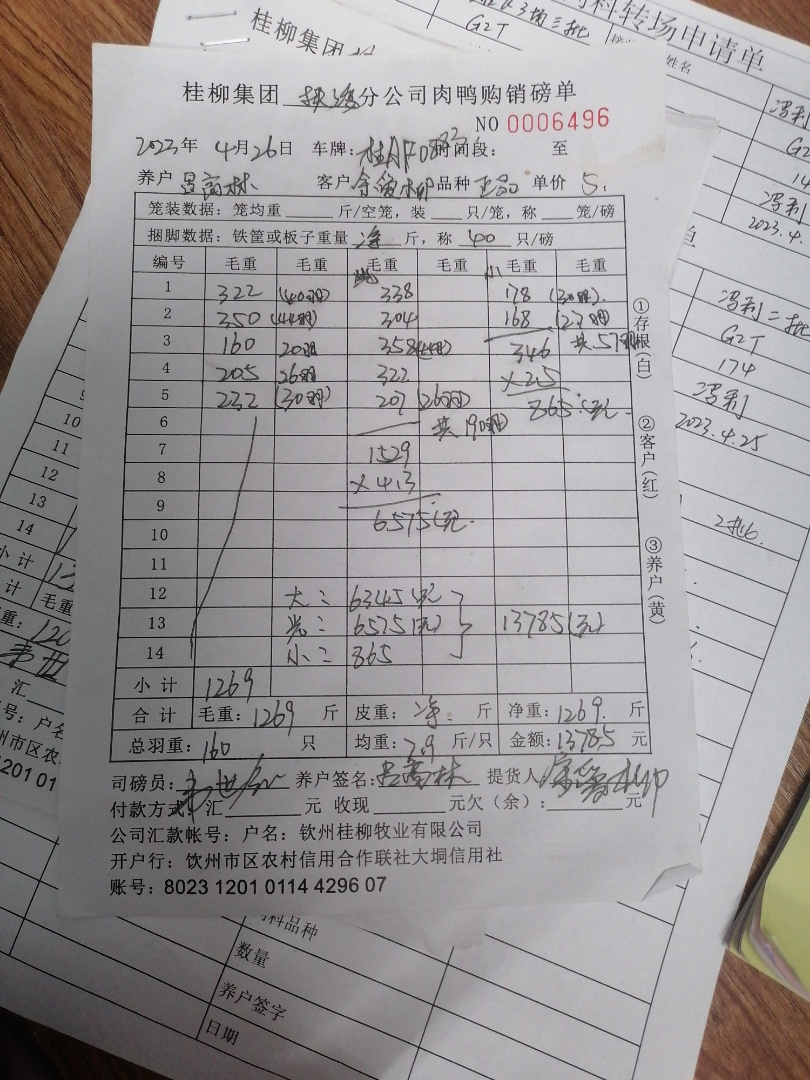 桂柳集团
G2T
转场申请单
姓名
桂柳集团 分公司肉鸭购销磅单
NO 0006496
2023年 4月26日 车牌: 时间段: 至
养户 客户 品种 正品 单价 5.
笼装数据: 笼均重 斤/空笼, 装 只/笼, 称 笼/磅
捆脚数据: 铁筐或板子重量 净 斤, 称 40 只/磅
编号 毛重 毛重 毛重 毛重 毛重 毛重
1 322 (40羽) 338 178 (30羽).
2 350 (44羽) 304 168 (27羽)
3 160 20羽 358 (44羽) 346 共57羽
4 205 26羽 322 ×2.5
5 232 (30羽) 207 (26羽) 865元.
6 共190羽
7 1529
8 ×4.3
9
10 6575(元).
11
12 大: 6345(元)
13 光: 6575(元) 13785(元)
14 小: 865
小计 1269
合计 毛重: 1269 斤 皮重: 净. 斤 净重: 1269. 斤
总羽重: 160 只 均重: 7.9 斤/只 金额: 13785 元
司磅员: 养户签名: 提货人
付款方式: 汇 元 收现 元欠(余): 元
公司汇款帐号: 户名: 钦州桂柳牧业有限公司
开户行: 饮州市区农村信用合作联社大垌信用社
账号: 8023 1201 0114 4296 07
①存根(白)
②客户(红)
③养户(黄)
冯利
G2
14
冯利
2023.4.
冯利二批
G2T
174
冯利
2023.4.25
10
11
12
13
14
小计
计 毛重
重: 120
汇
号: 户名
州市区农
201 01
料品种
数量
养户签字
日期